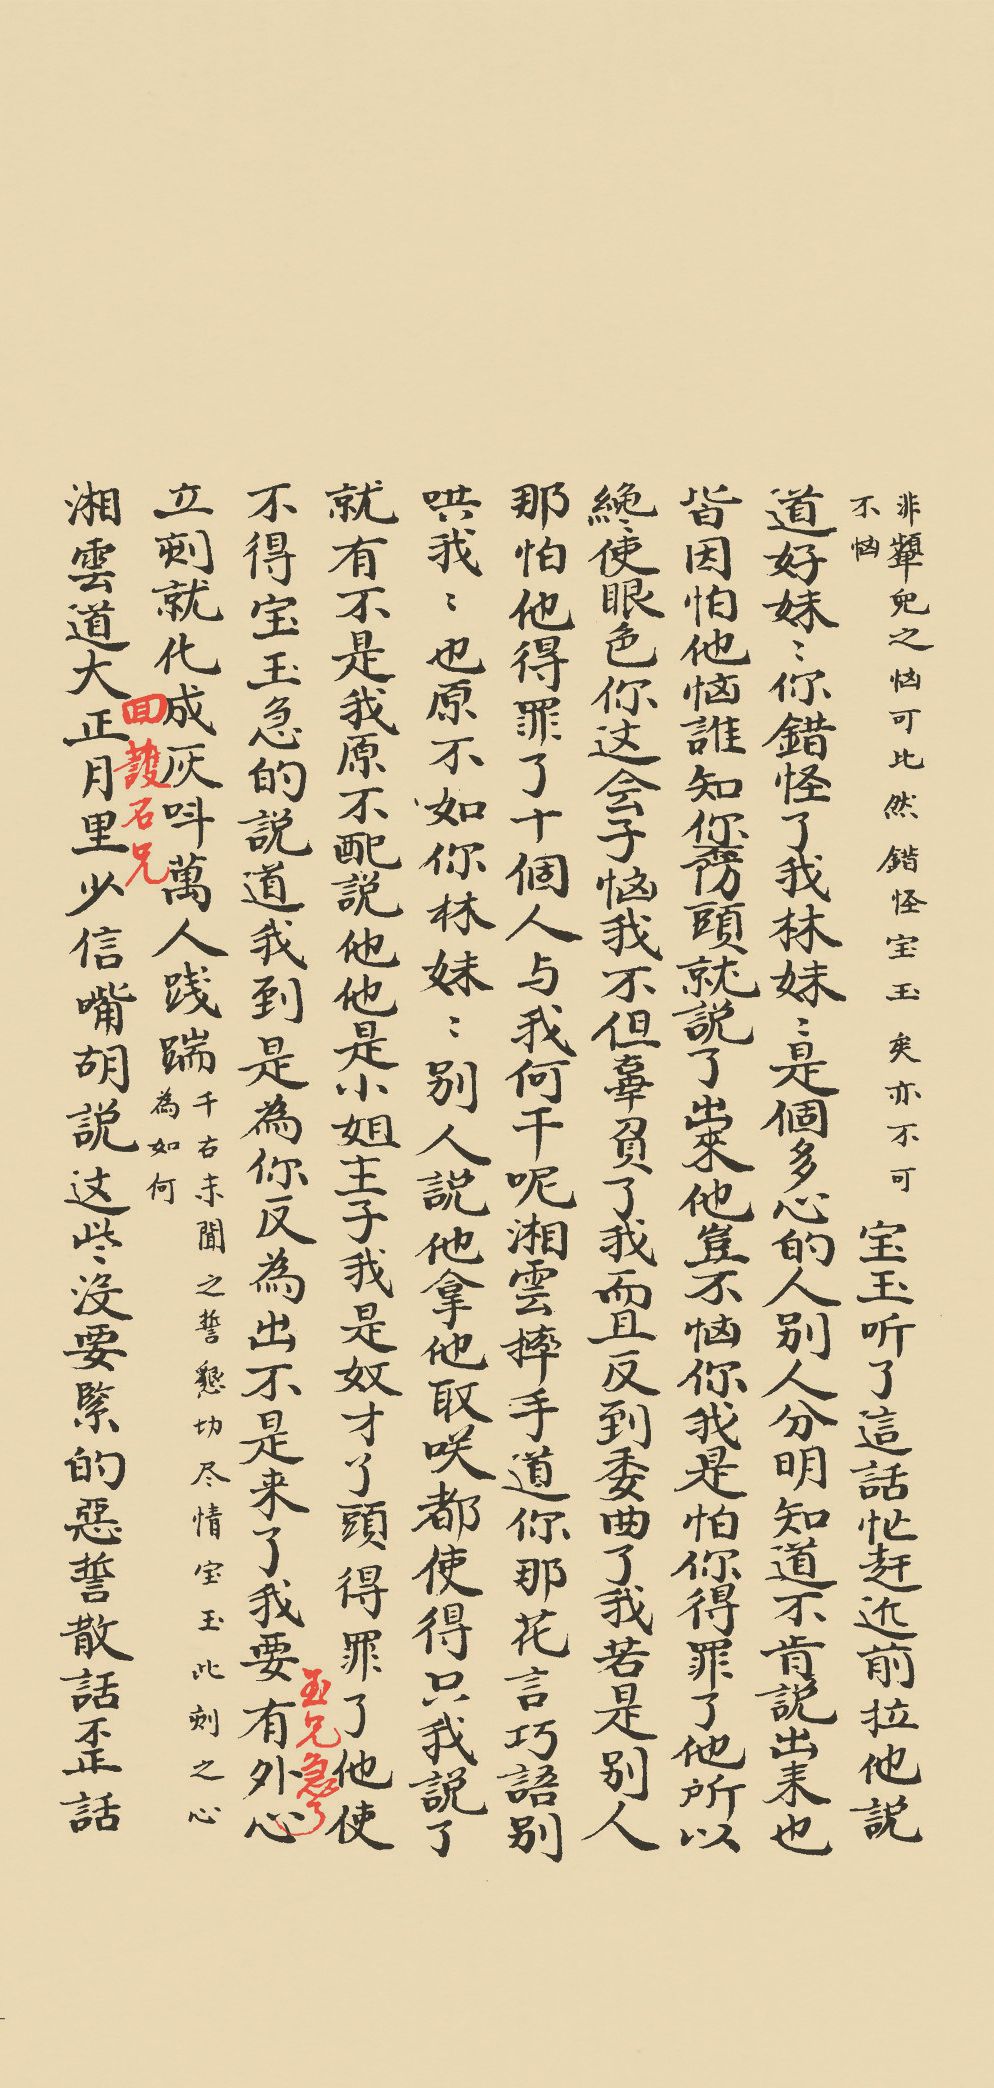 非顰兒之惱可比然錯怪宝玉矣亦不可
不惱
宝玉听了這話忙赶近前拉他説
道好妹〻你錯怪了我林妹〻是個多心的人别人分明知道不肯説出来也
皆因怕他惱誰知你不防頭就説了出來他豈不惱你我是怕你得罪了他所以
纔使眼色你这会子惱我不但辜負了我而且反到委曲了我若是别人
那怕他得罪了十個人与我何干呢湘雲摔手道你那花言巧語别
哄我〻也原不如你林妹〻别人説他拿他取咲都使得只我説了
就有不是我原不配説他他是小姐主子我是奴才丫頭得罪了他使
不得宝玉急的説道我到是為你反為出不是来了我要有外心
玉兄急了
立刻就化成灰呌萬人践踹
千古未聞之誓懇切尽情宝玉此刻之心
為如何
回護石兄
湘雲道大正月里少信嘴胡説这些没要緊的惡誓散話歪話